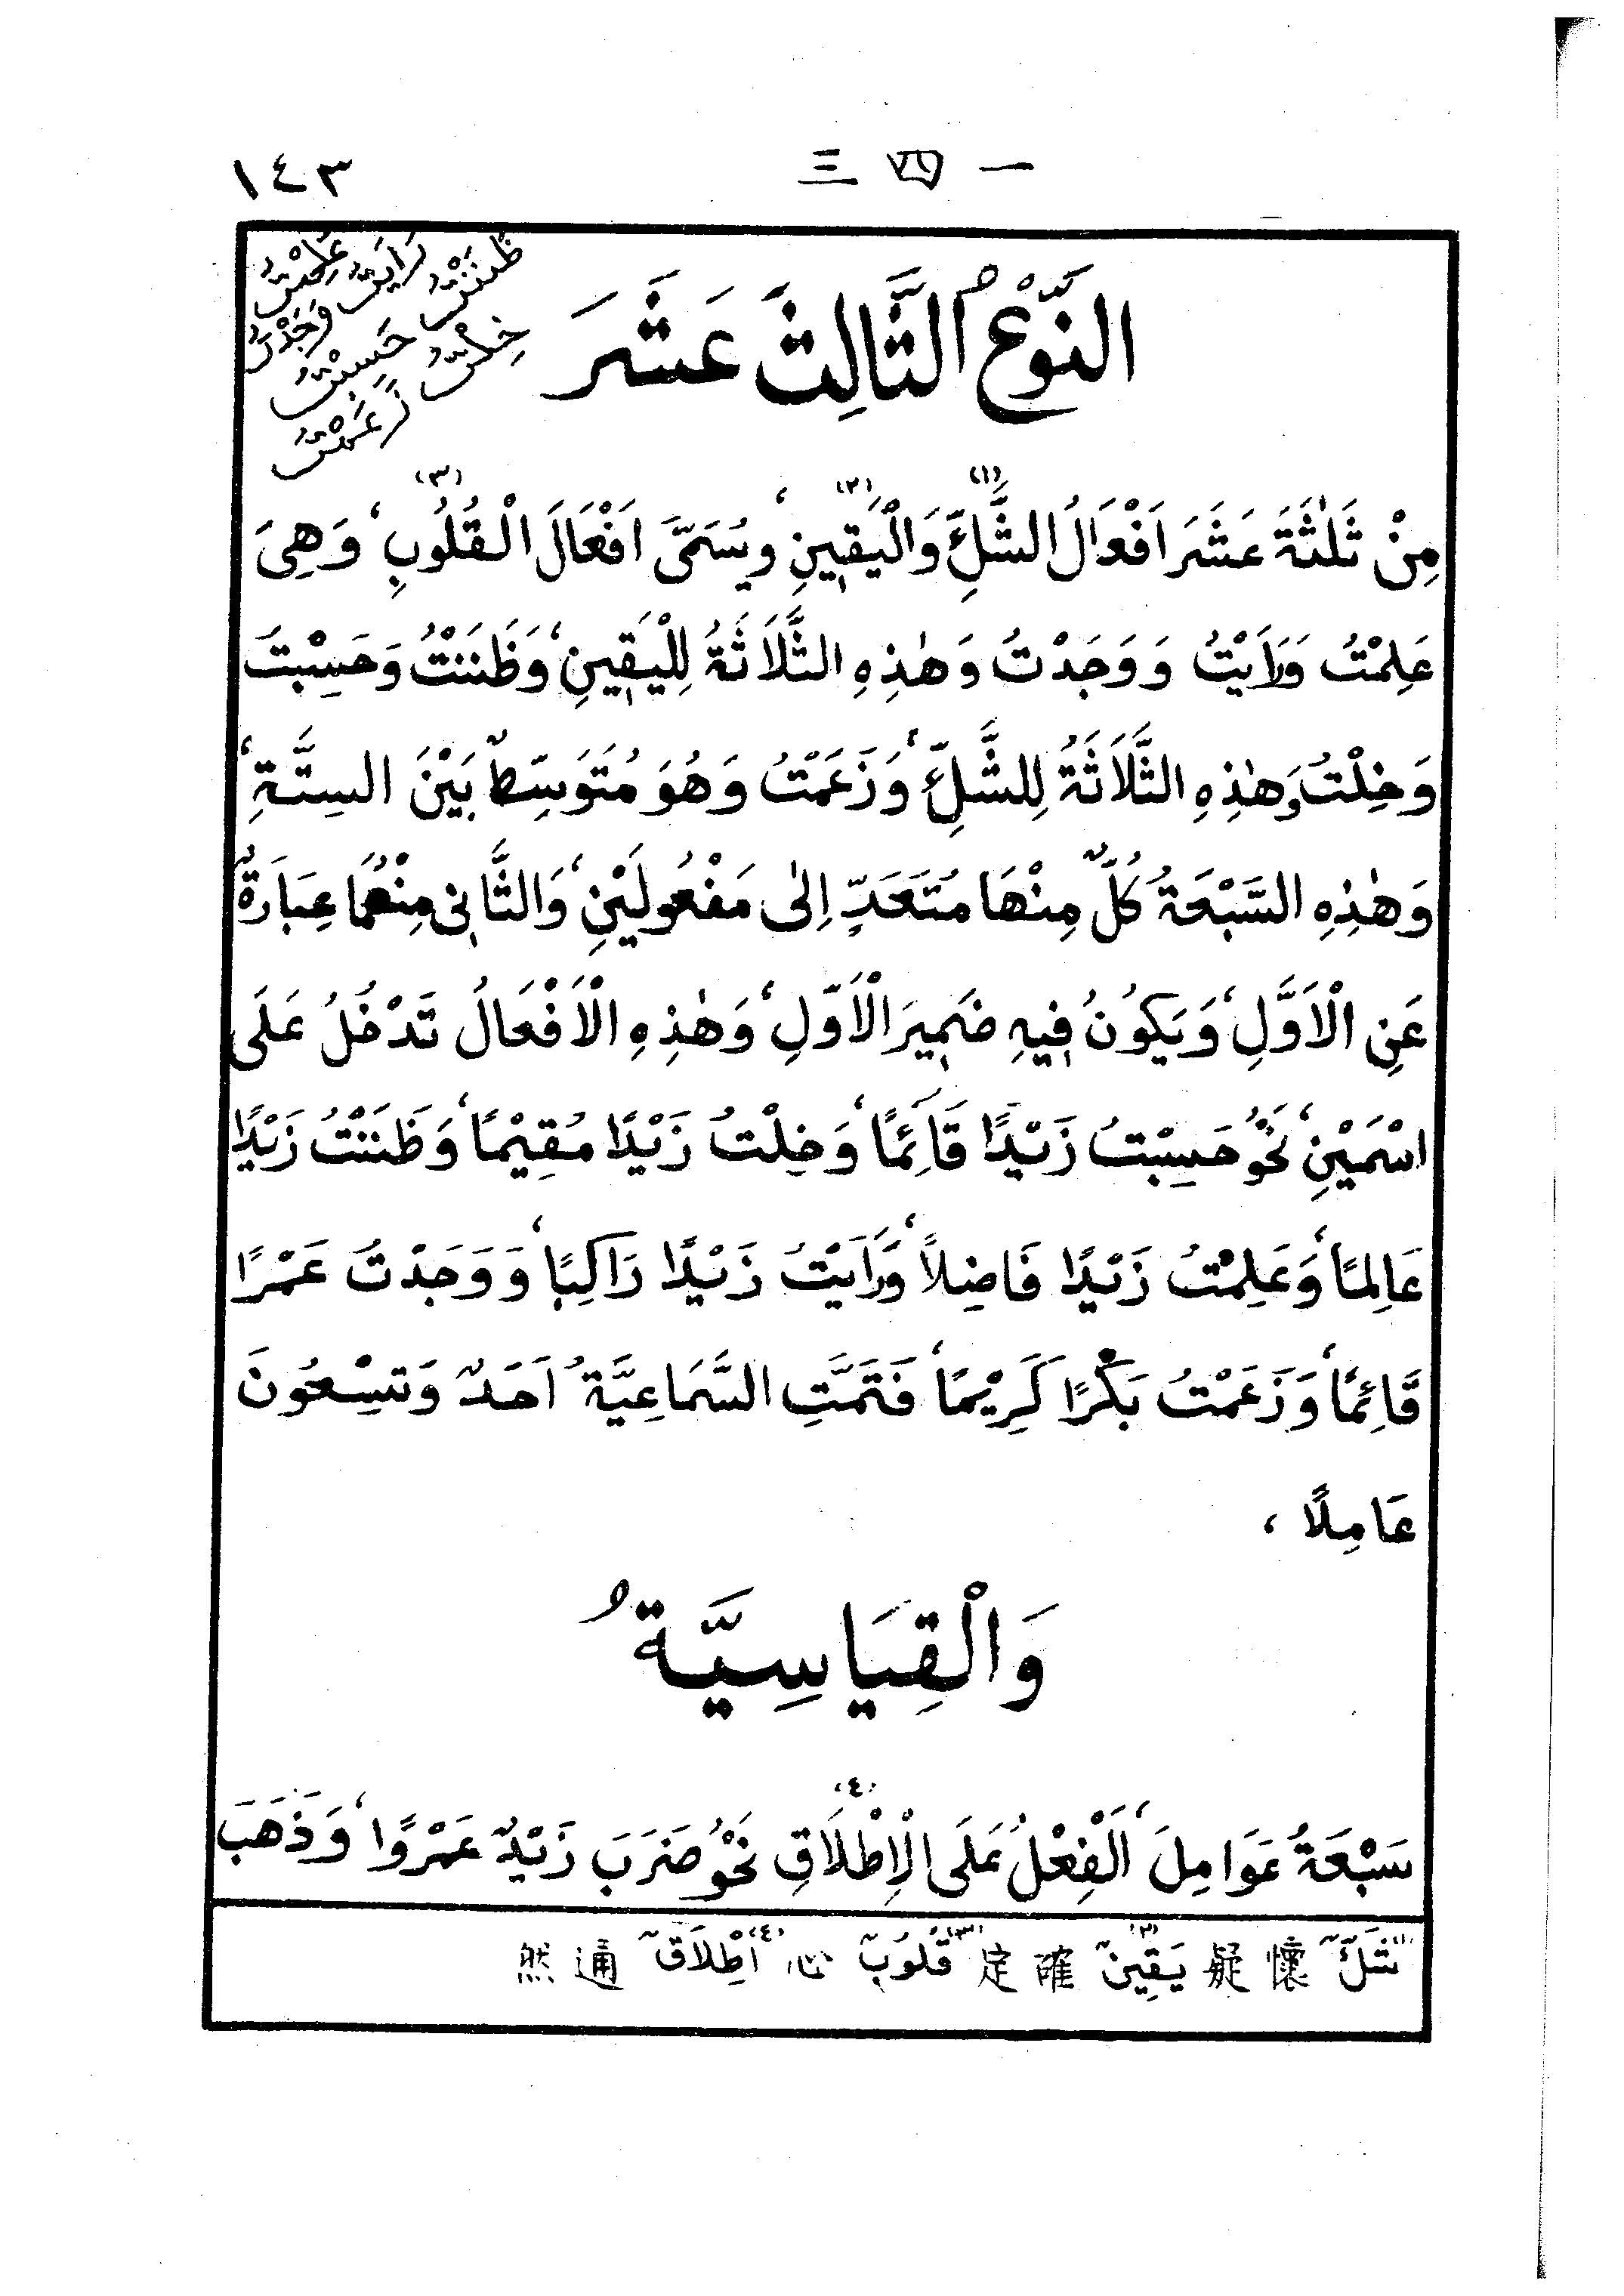 ١٤٣ 一四三
عَلِمْتُ رَاَيْتُ ظَنَنْتُ
وَجَدْتُ حَسِبْتُ خِلْتُ
زَعَمْتُ
اَلنَّوْعُ الثَّالِثَ عَشَرَ
مِنْ ثَلٰثَةَ عَشَرَ اَفْعَالُ الشَّكِّ(١) وَالْيَقِينِ(٢)، وَيُسَمَّى اَفْعَالَ الْقُلُوبِ(٣)، وَهِىَ
عَلِمْتُ وَرَاَيْتُ وَوَجَدْتُ وَهٰذِهِ الثَّلَاثَةُ لِلْيَقِينِ، وَظَنَنْتُ وَحَسِبْتُ
وَخِلْتُ وَهٰذِهِ الثَّلَاثَةُ لِلشَّكِّ، وَزَعَمْتُ وَهُوَ مُتَوَسِّطٌ بَيْنَ السِتَّةِ،
وَهٰذِهِ السَّبْعَةُ كُلٌّ مِنْهَا مُتَعَدٍّ اِلٰى مَفْعُولَيْنِ، وَالثَّانِى مِنْهُمَا عِبَارَةٌ
عَنِ الْاَوَّلِ، وَيَكُونُ فِيهِ ضَمِيرَ الْاَوَّلِ، وَهٰذِهِ الْاَفْعَالُ تَدْخُلُ عَلَى
اسْمَيْنِ، نَحْوُ حَسِبْتُ زَيْدًا قَائِمًا، وَخِلْتُ زَيْدًا مُقِيْمًا، وَظَنَنْتُ زَيْدًا
عَالِمًا، وَعَلِمْتُ زَيْدًا فَاضِلاً، وَرَاَيْتُ زَيْدًا رَاكِبًا، وَوَجَدْتُ عَمْرًا
قَائِمًا، وَزَعَمْتُ بَكْرًا كَرِيْمًا، فَتَمَّتِ السَّمَاعِيَّةُ اَحَدٌ وَتِسْعُونَ
عَامِلًا،
وَالْقِيَاسِيَّةُ
سَبْعَةُ عَوَامِلَ، اَلْفِعْلُ عَلَى الْاِطْلَاقِ(٤) نَحْوُ ضَرَبَ زَيْدٌ عَمْرًوا، وَذَهَبَ
(١) شَكٌّ 懷疑 (٢) يَقِينٌ 確定 (٣) قُلُوبٌ 心 (٤) اِطْلَاقٌ 通然